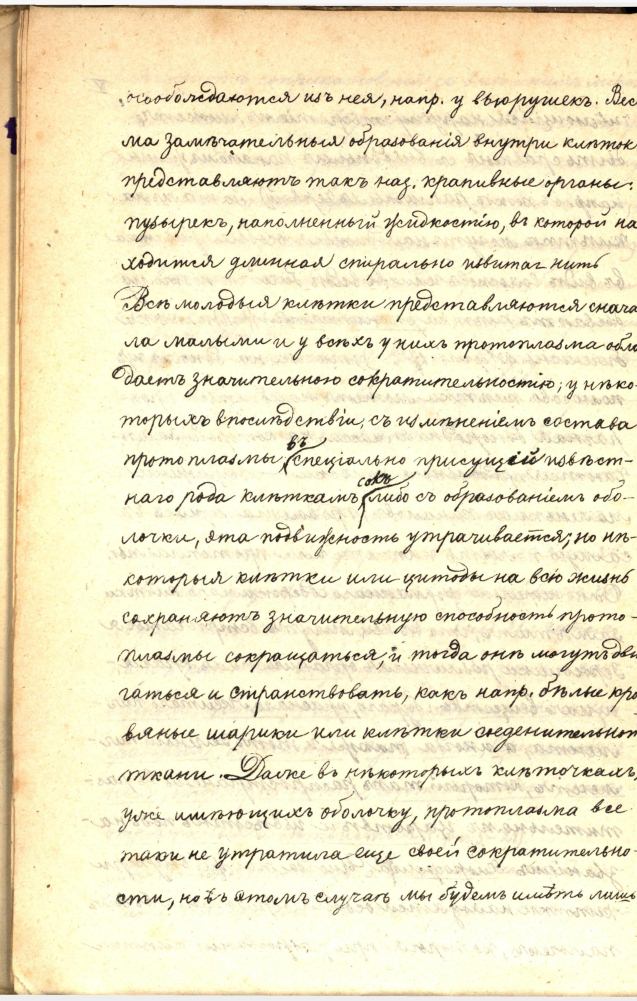 освобождаются изъ нея, напр. у вьюрушекъ. Вес
ма замѣчательныя образованія внутри клѣток
представляютъ такъ наз. крапивные органы:
пузырекъ, наполненный жидкостію, въ которой на
ходится длинная спирально извитая нить
Всѣ молодыя клѣтки представляются снача
ла малыми и у всѣхъ у нихъ протоплазма обла
даетъ значительною сократительностію; у нѣко-
торыхъ впослѣдствіи, съ измѣненіемъ состава
протоплазмы, въ спеціально присущій извѣст-
наго рода клѣткамъ сокъ либо съ образованіемъ обо-
лочки, эта подвижность утрачивается; но нѣ-
которыя клѣтки или цитоды на всю жизнь
сохраняютъ значительную способность прото-
плазмы сокращаться, и тогда онѣ могутъ дви
гаться и странствовать, какъ напр. бѣлые кро
вяные шарики или клѣтки соеденительной
ткани. Далѣе въ нѣкоторыхъ клѣточкахъ,
уже имѣющихъ оболочку, протоплазма все
таки не утратила еще своей сократительно-
сти, но въ этомъ случаѣ мы будемъ имѣть лишь